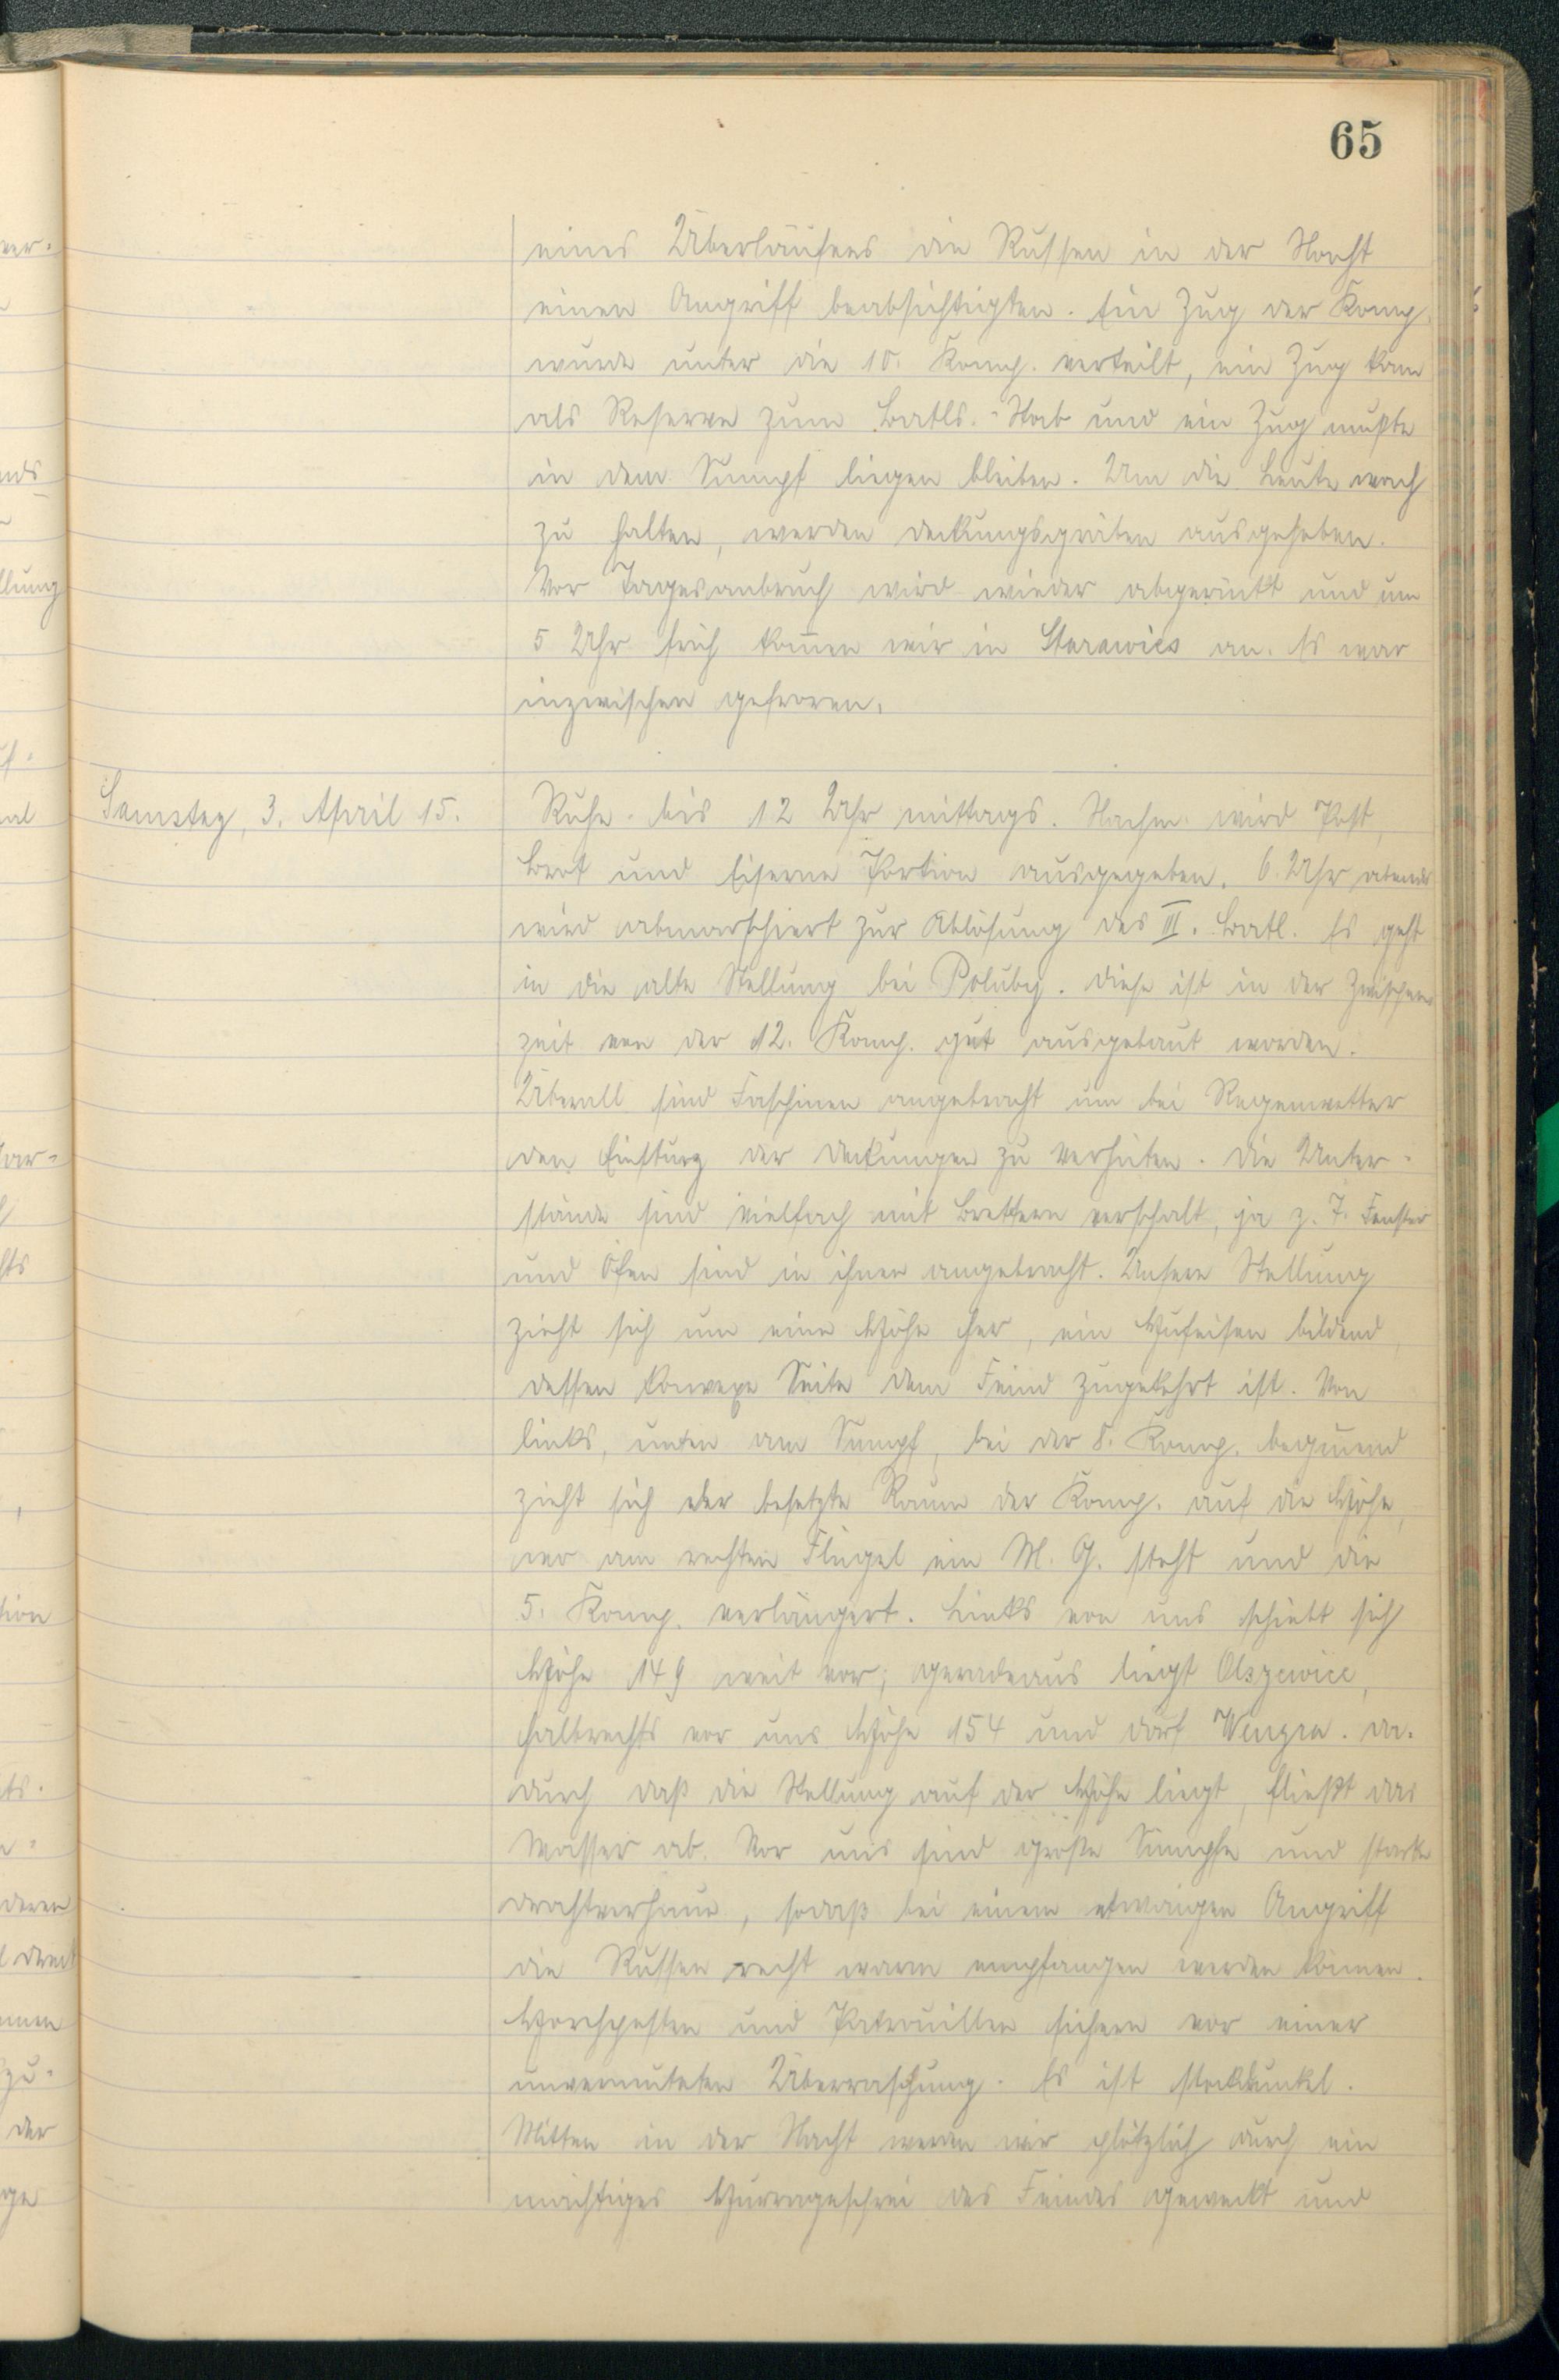 65
eines Überläufers die Russen in der Nacht
einen Angriff beabsichtigten. Ein Zug der Komp.
wurde unter die 10. Komp. verteilt, ein Zug kam
als Reserve zum Batls.-Stab und ein Zug mußte
in dem Sumpf liegen bleiben. Um die Leute wach
zu halten, werden Deckungsgräben ausgehoben.
Vor Tagesanbruch wird wieder abgerückt und um
5 Uhr früh kom̄en wir in Starawies an. Es war
inzwischen gefroren.
Samstag, 3. April 15.
Ruhe bis 12 Uhr mittags. Nachm. wird Post,
Brot und Eiserne Portion ausgegeben. 6 Uhr abends
wird abmarschiert zur Ablösung des III. Batl. Es geht
in die alte Stellung bei Poluby. Diese ist in der Zwischen
zeit von der 12. Komp. gut ausgebaut worden.
Überall sind Faschinen angebracht um bei Regenwetter
den Einsturz der Deckungen zu verhüten. Die Unter-
stände sind vielfach mit Brettern verschalt, ja z. T. Fenster
und Öfen sind in ihnen angebracht. Unsere Stellung
zieht sich um eine Höhe her, ein Hufeisen bildend
dessen konvexe Seite dem Feind zugekehrt ist. Von
links, unten am Sumpf, bei der 8. Komp. begin̄end
zieht sich der besetzte Raum der Komp. auf die Höhe,
wo am rechten Flügel ein M. G. steht und die
5. Komp. verlängert. Links von uns schiebt sich
Höhe 149 weit vor; geradeaus liegt Olszewice,
halbrechts vor uns Höhe 154 und Dorf Wengra. Da-
durch daß die Stellung auf der Höhe liegt, fließt das
Wasser ab. Vor uns sind große Sümpfe und starke
Drahtverhaue, sodaß bei einem etwaigen Angriff
die Russen recht warm empfangen werden können.
Horchposten und Patrouillen sichern vor einer
unvermuteten Überraschung. Es ist stockdunkel.
Mitten in der Nacht werden wir plötzlich durch ein
mächtiges Hurrageschrei des Feindes geweckt und